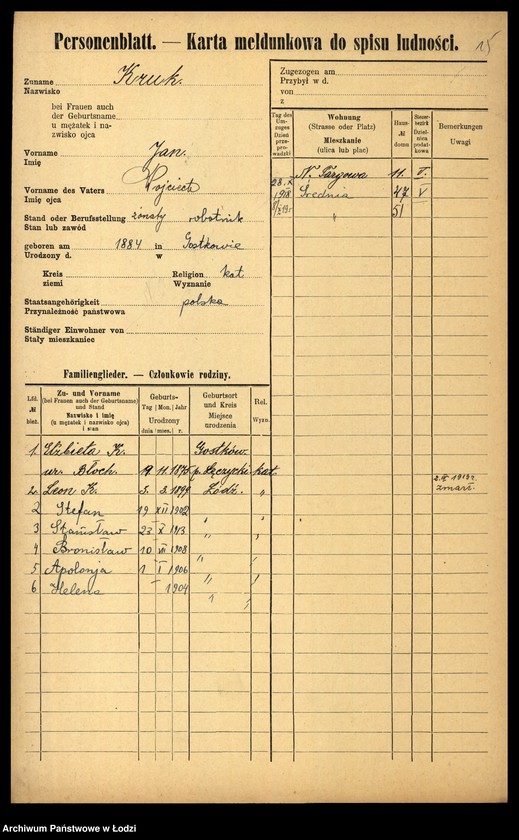 Personenblatt. — Karta meldunkowa do spisu ludności.
15
Zuname
Nazwisko
Kruk.
bei Frauen auch
der Geburtsname
u mężatek i na-
zwisko ojca
Vorname
Imię
Jan.
Vorname des Vaters
Imię ojca
Wojciech
Stand oder Berufsstellung
Stan lub zawód
żonaty robotnik
geboren am 1884 in Gostkowie
Urodzony d. w
Kreis
ziemi
Religion kat
Wyznanie
Staatsangehörigkeit
Przynależność państwowa
polska
Ständiger Einwohner von
Stały mieszkaniec
Zugezogen am
Przybył w d.
von
z
Tag des Um-
zuges
Dzień
prze-
prowadzki
Wohnung
(Strasse oder Platz)
Mieszkanie
(ulica lub plac)
Haus-
№
domu
Steuer-
bezirk
Dziel-
nica
podat-
kowa
Bemerkungen
Uwagi
N. Targowa 11. V.
28. X
1918 Średnia 47 V
51
Familienglieder. — Członkowie rodziny.
Lfd.
№
bież.
Zu- und Vorname
(bei Frauen auch der Geburtsname)
und Stand
Nazwisko i imię
(u mężatek i nazwisko ojca)
i stan
Geburts-
Tag Mon. Jahr
Urodzony
dnia mies. r.
Geburtsort
und Kreis
Miejsce
urodzenia
Rel.
Wyzn.
1. Elżbieta K. Gostków.
ur. Błoch. 19 11. 1875 p. Łęczycki kat.
2. Leon K. 3. 3. 1899 Łódź. „
2. IX 1919 r.
zmarł.
2 Stefan 19 XII 1902 „ „
3 Stanisław 23 X 1913 „ „
4 Bronisław 10 VII 1908 „ „
5 Apolonja 1 I 1906 „ „
6 Helena 1904 „ „
Archiwum Państwowe w Łodzi